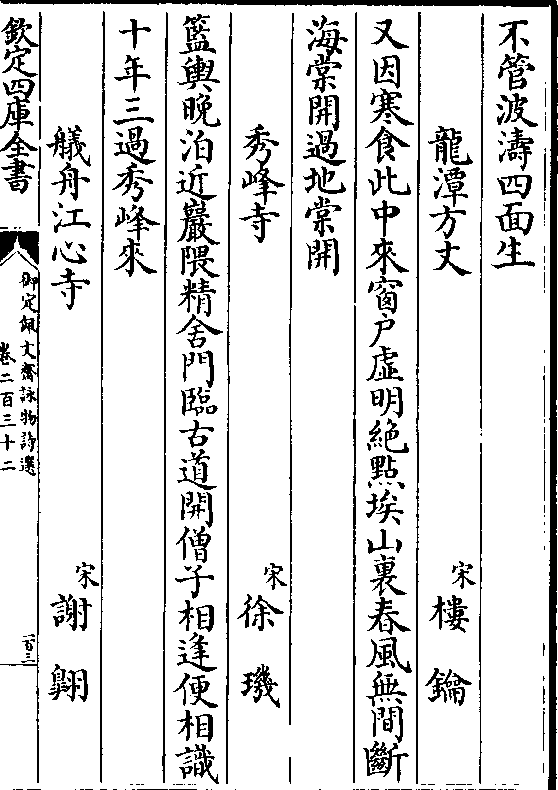 不管波濤四面生
龍潭方丈 宋 樓鑰
又因寒食此中來窗户虛明絶點埃山裏春風無間斷
海棠開過地棠開
秀峰寺 宋 徐璣
籃輿晚泊近巖隈精舍門臨古道開僧子相逢便相識
十年三過秀峰來
艤舟江心寺 宋 謝翺
欽定四庫全書
御定佩文齋詠物詩選
卷二百三十二